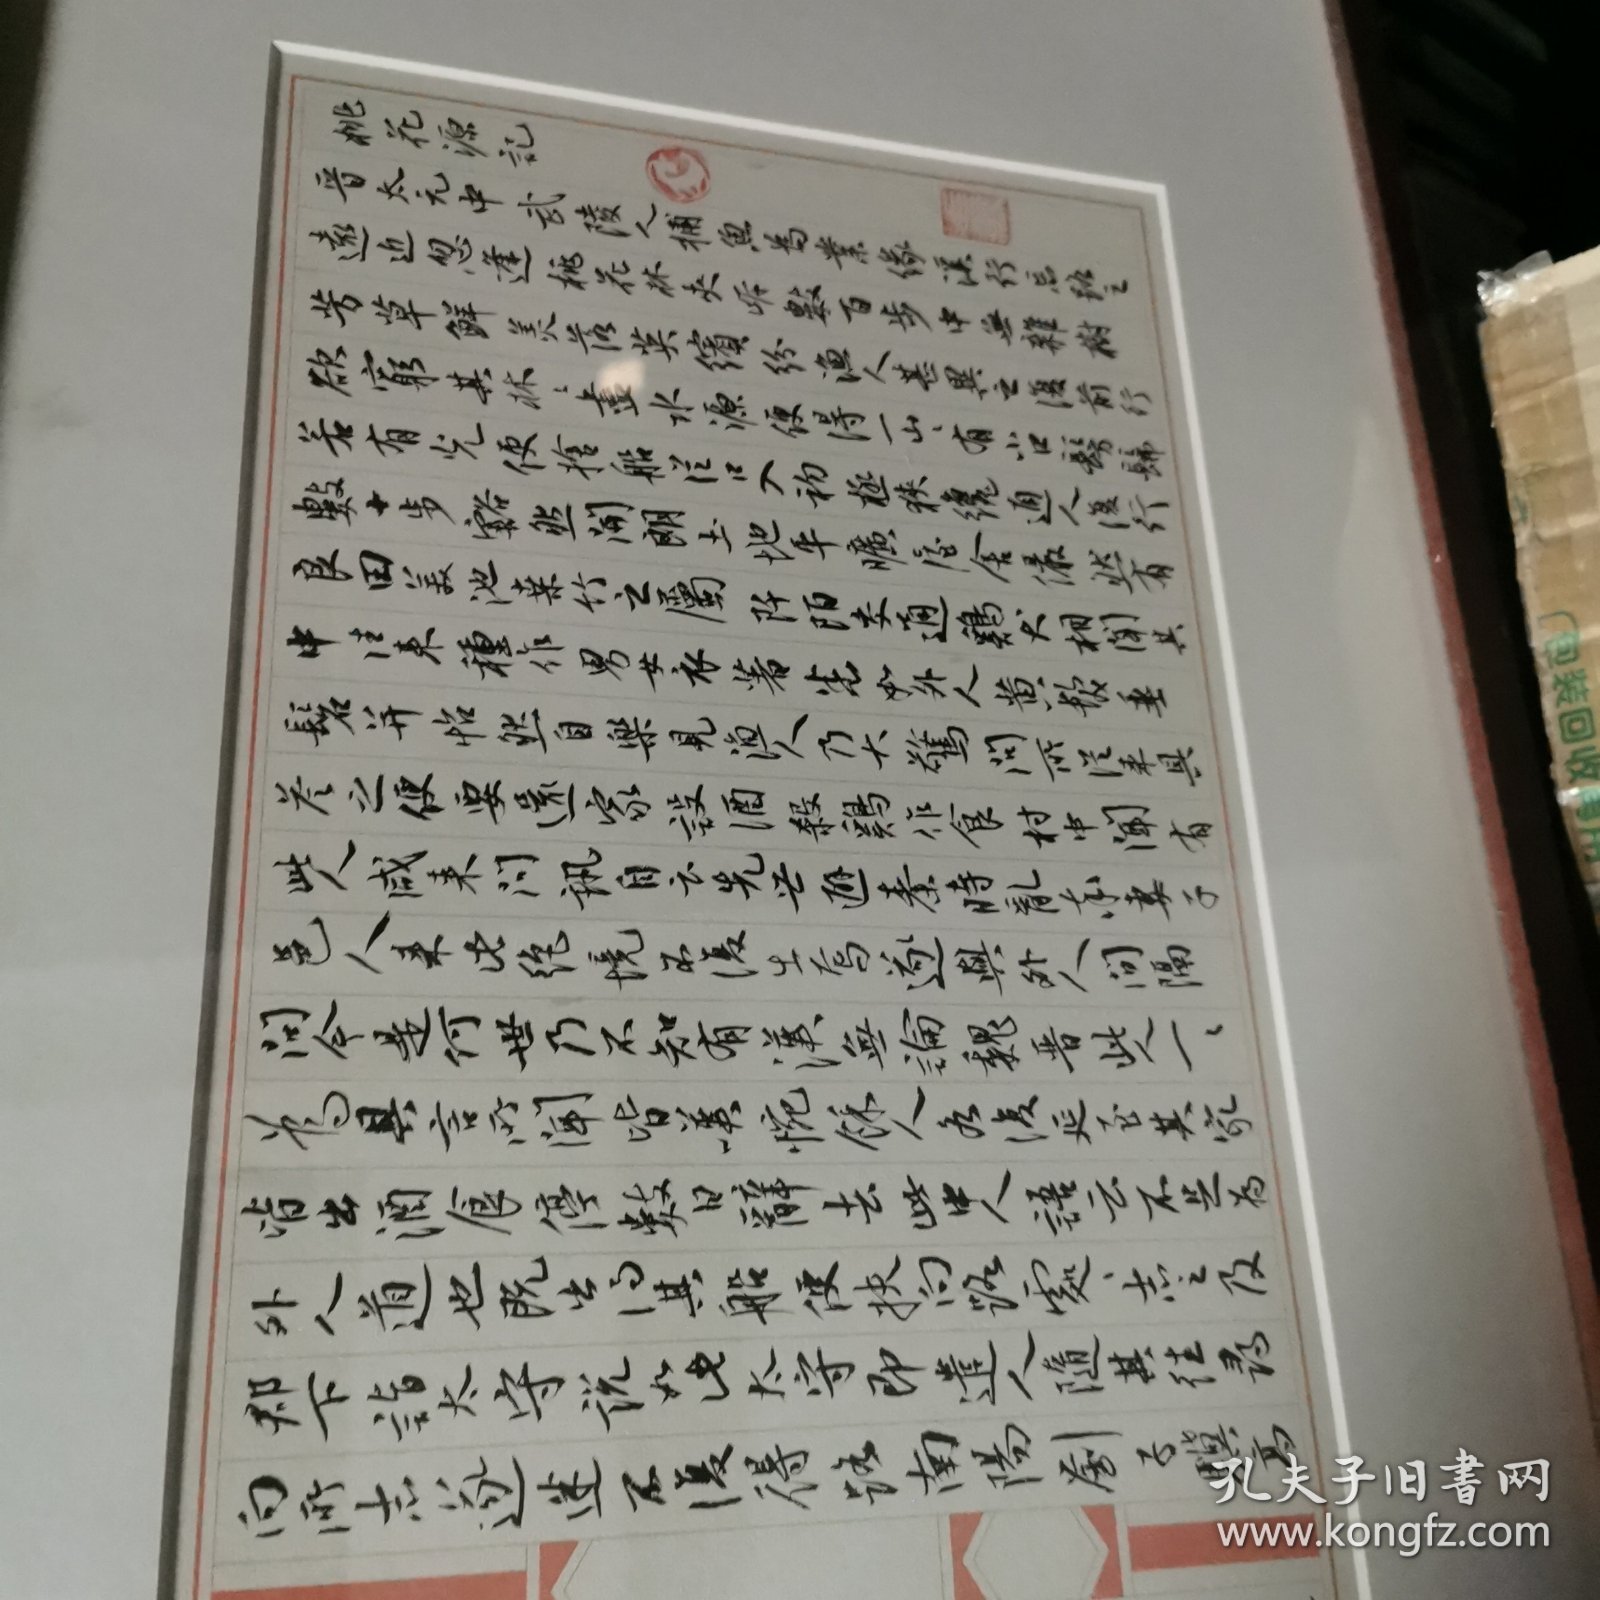 桃花源記
晉太元中武陵人捕魚為業緣溪行忘路之
遠近忽逢桃花林夾岸數百步中無雜樹
芳草鮮美落英繽紛漁人甚異之復前行
欲窮其林、盡水源便得一山、有小口髣髴
若有光便捨船從口入初極狹纔通人復行
數十步豁然開朗土地平曠屋舍儼然有
良田美池桑竹之屬阡陌交通雞犬相聞其
中往來種作男女衣著悉如外人黄髮垂
髫并怡然自樂見漁人乃大驚問所從來具
答之便要還家設酒殺雞作食村中聞有
此人咸來問訊自云先世避秦時亂率妻子
邑人來此絶境不復出焉遂與外人間隔
問今是何世乃不知有漢無論魏晉此人一、
為具言所聞皆嘆惋餘人各復延至其家
皆出酒食停數日辭去此中人語云不足為
外人道也既出得其船便扶向路處、志之及
郡下詣太守說如此太守即遣人隨其往尋
向所志遂迷不復得路南陽劉子驥高
孔夫子旧書网
www.kongfz.com